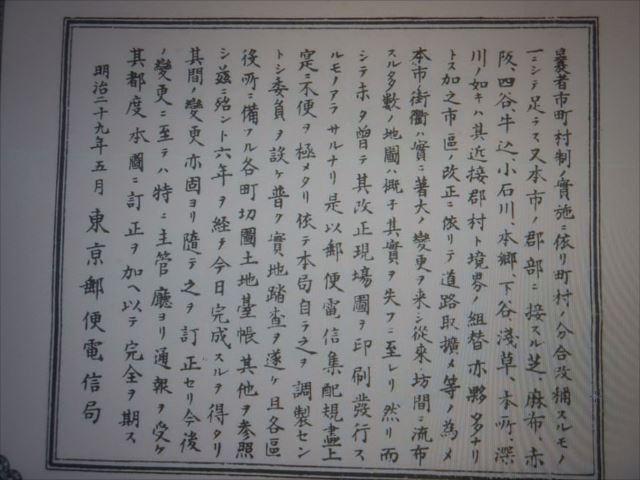 曩者市町村制ノ實施ニ依リ町村ノ分合改稱スルモノ
一ニシテ足ラス又本市ノ郡部ニ接スル芝、麻布、赤
阪、四谷牛込、小石川、本郷、下谷、淺草、本所、深
川ノ如キハ其近接郡村ト境界ノ組替亦夥多ナリ
トス加之市區ノ改正ニ依リテ道路取擴メ等ノ為メ
本市街衢ハ實ニ著大ノ變更ヲ来シ從來坊間ニ流布
スル多數ノ地圖ハ概子其實ヲ失フニ至レリ然リ而
シテ未タ曾テ其改正現塲圖ヲ印刷發行ス
ルモノアラサルナリ是以郵便電信集配規畫上
寔ニ不便ヲ極メタリ依テ本局自ラ之ヲ調製セン
トシ委員ヲ設ケ普ク實地踏査ヲ遂ケ且各區
役所ニ備フル各町切圖土地䑓帳其他ヲ参照
シ茲ニ殆ント六年ヲ経テ今日完成スルヲ得タリ
其間ノ變更亦固ヨリ隨テ之ヲ訂正セリ今後
ノ變更ニ至テハ特ニ主管廳ヨリ通報ヲ受ケ
其都度本圖ニ訂正ヲ加ヘ以テ完全ヲ期ス
明治二十九年五月 東京郵便電信局